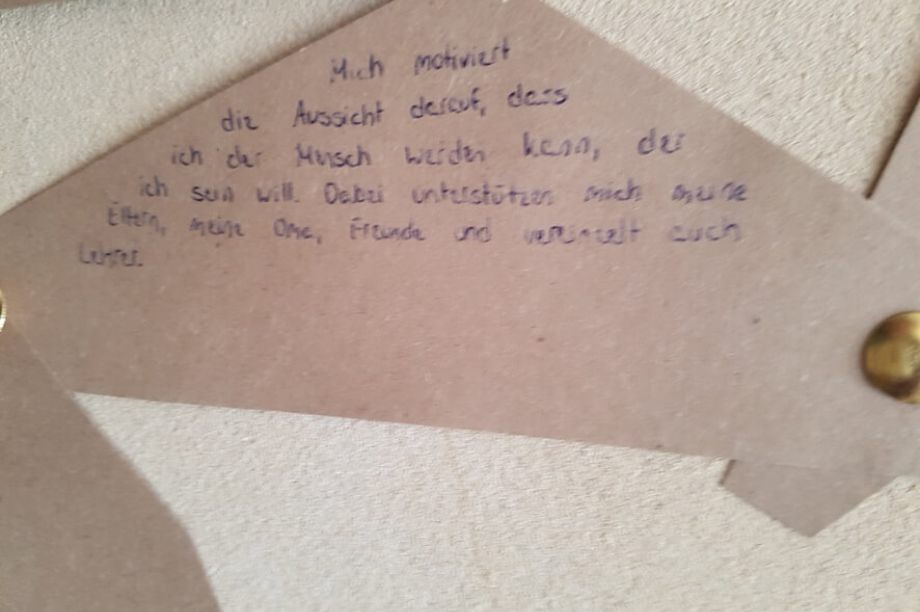 Mich motiviert
die Aussicht darauf, dass
ich der Mensch werden kann, der
ich sein will. Dabei unterstützen mich meine
Eltern, meine Oma, Freunde und vereinzelt auch
Lehrer.